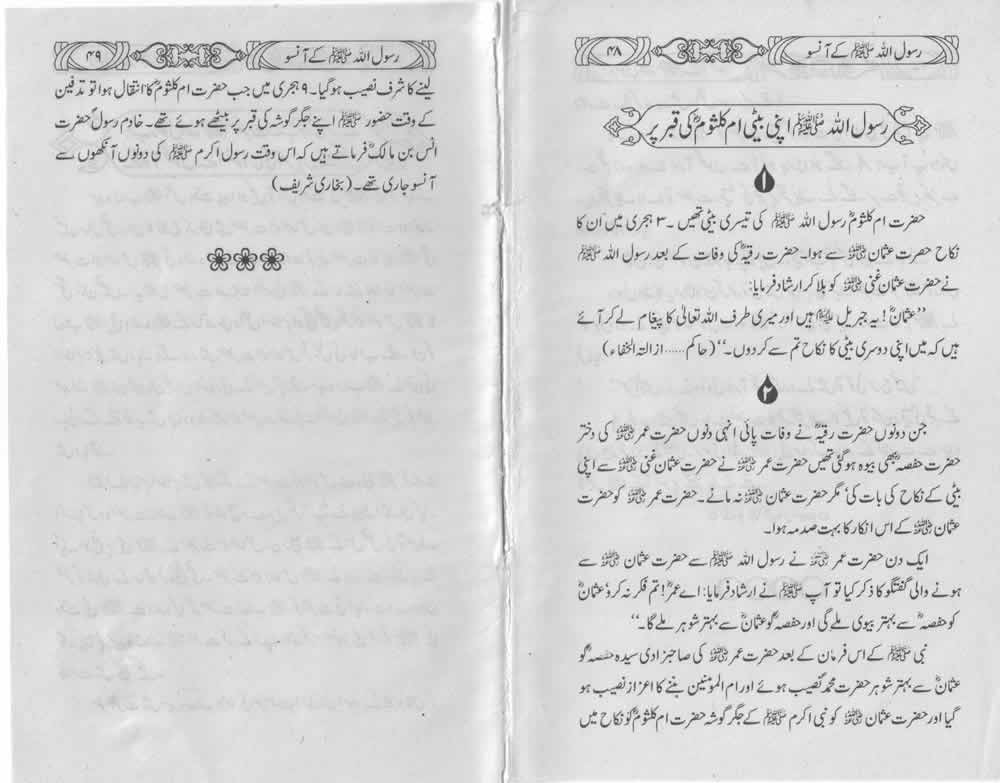 رسول اللہ ﷺ کے آنسو
۴۸
رسول اللہ ﷺ اپنی بیٹی ام کلثومؓ کی قبر پر
۱
حضرت ام کلثومؓ رسول اللہ ﷺ کی تیسری بیٹی تھیں۔ ۳ ہجری میں ان کا
نکاح حضرت عثمان رضی اللہ عنہ سے ہوا۔ حضرت رقیہؓ کی وفات کے بعد رسول اللہ ﷺ
نے حضرت عثمان غنی رضی اللہ عنہ کو بلا کر ارشاد فرمایا:
’’عثمانؓ! یہ جبریل علیہ السلام ہیں اور میری طرف اللہ تعالیٰ کا پیغام لے کر آئے
ہیں کہ میں اپنی دوسری بیٹی کا نکاح تم سے کردوں۔‘‘ (حاکم ...... ازالتہ الخفاء)
۲
جن دونوں حضرت رقیہؓ نے وفات پائی انہی دنوں حضرت عمر رضی اللہ عنہ کی دختر
حضرت حفصہؓ بھی بیوہ ہوگئی تھیں حضرت عمر رضی اللہ عنہ نے حضرت عثمان غنی رضی اللہ عنہ سے اپنی
بیٹی کے نکاح کی بات کی‘ مگر حضرت عثمان رضی اللہ عنہ نہ مانے۔ حضرت عمر رضی اللہ عنہ کو حضرت
عثمان رضی اللہ عنہ کے اس انکار کا بہت صدمہ ہوا۔
ایک دن حضرت عمر رضی اللہ عنہ نے رسول اللہ ﷺ سے حضرت عثمان رضی اللہ عنہ سے
ہونے والی گفتگو کا ذکر کیا تو آپ ﷺ نے ارشاد فرمایا: اے عمرؓ! تم فکر نہ کرو‘ عثمانؓ
کو حفصہؓ سے بہتر بیوی ملے گی اور حفصہؓ کو عثمانؓ سے بہتر شوہر ملے گا۔‘‘
نبی ﷺ کے اس فرمان کے بعد حضرت عمر رضی اللہ عنہ کی صاحبزادی سیدہ حفصہؓ کو
عثمانؓ سے بہتر شوہر حضرت محمدؐ نصیب ہوئے اور ام المومنین بننے کا اعزاز نصیب ہو
گیا اور حضرت عثمان رضی اللہ عنہ کو نبی اکرم ﷺ کے جگر گوشہ حضرت ام کلثومؓ کو نکاح میں
رسول اللہ ﷺ کے آنسو
۴۹
لینے کا شرف نصیب ہوگیا۔ ۹ ہجری میں جب حضرت ام کلثومؓ کا انتقال ہوا تو تدفین
کے وقت حضور ﷺ اپنے جگر گوشہ کی قبر پر بیٹھے ہوئے تھے۔ خادم رسولؐ حضرت
انس بن مالکؓ فرماتے ہیں کہ اس وقت رسول اکرم ﷺ کی دونوں آنکھوں سے
آنسو جاری تھے۔ (بخاری شریف)